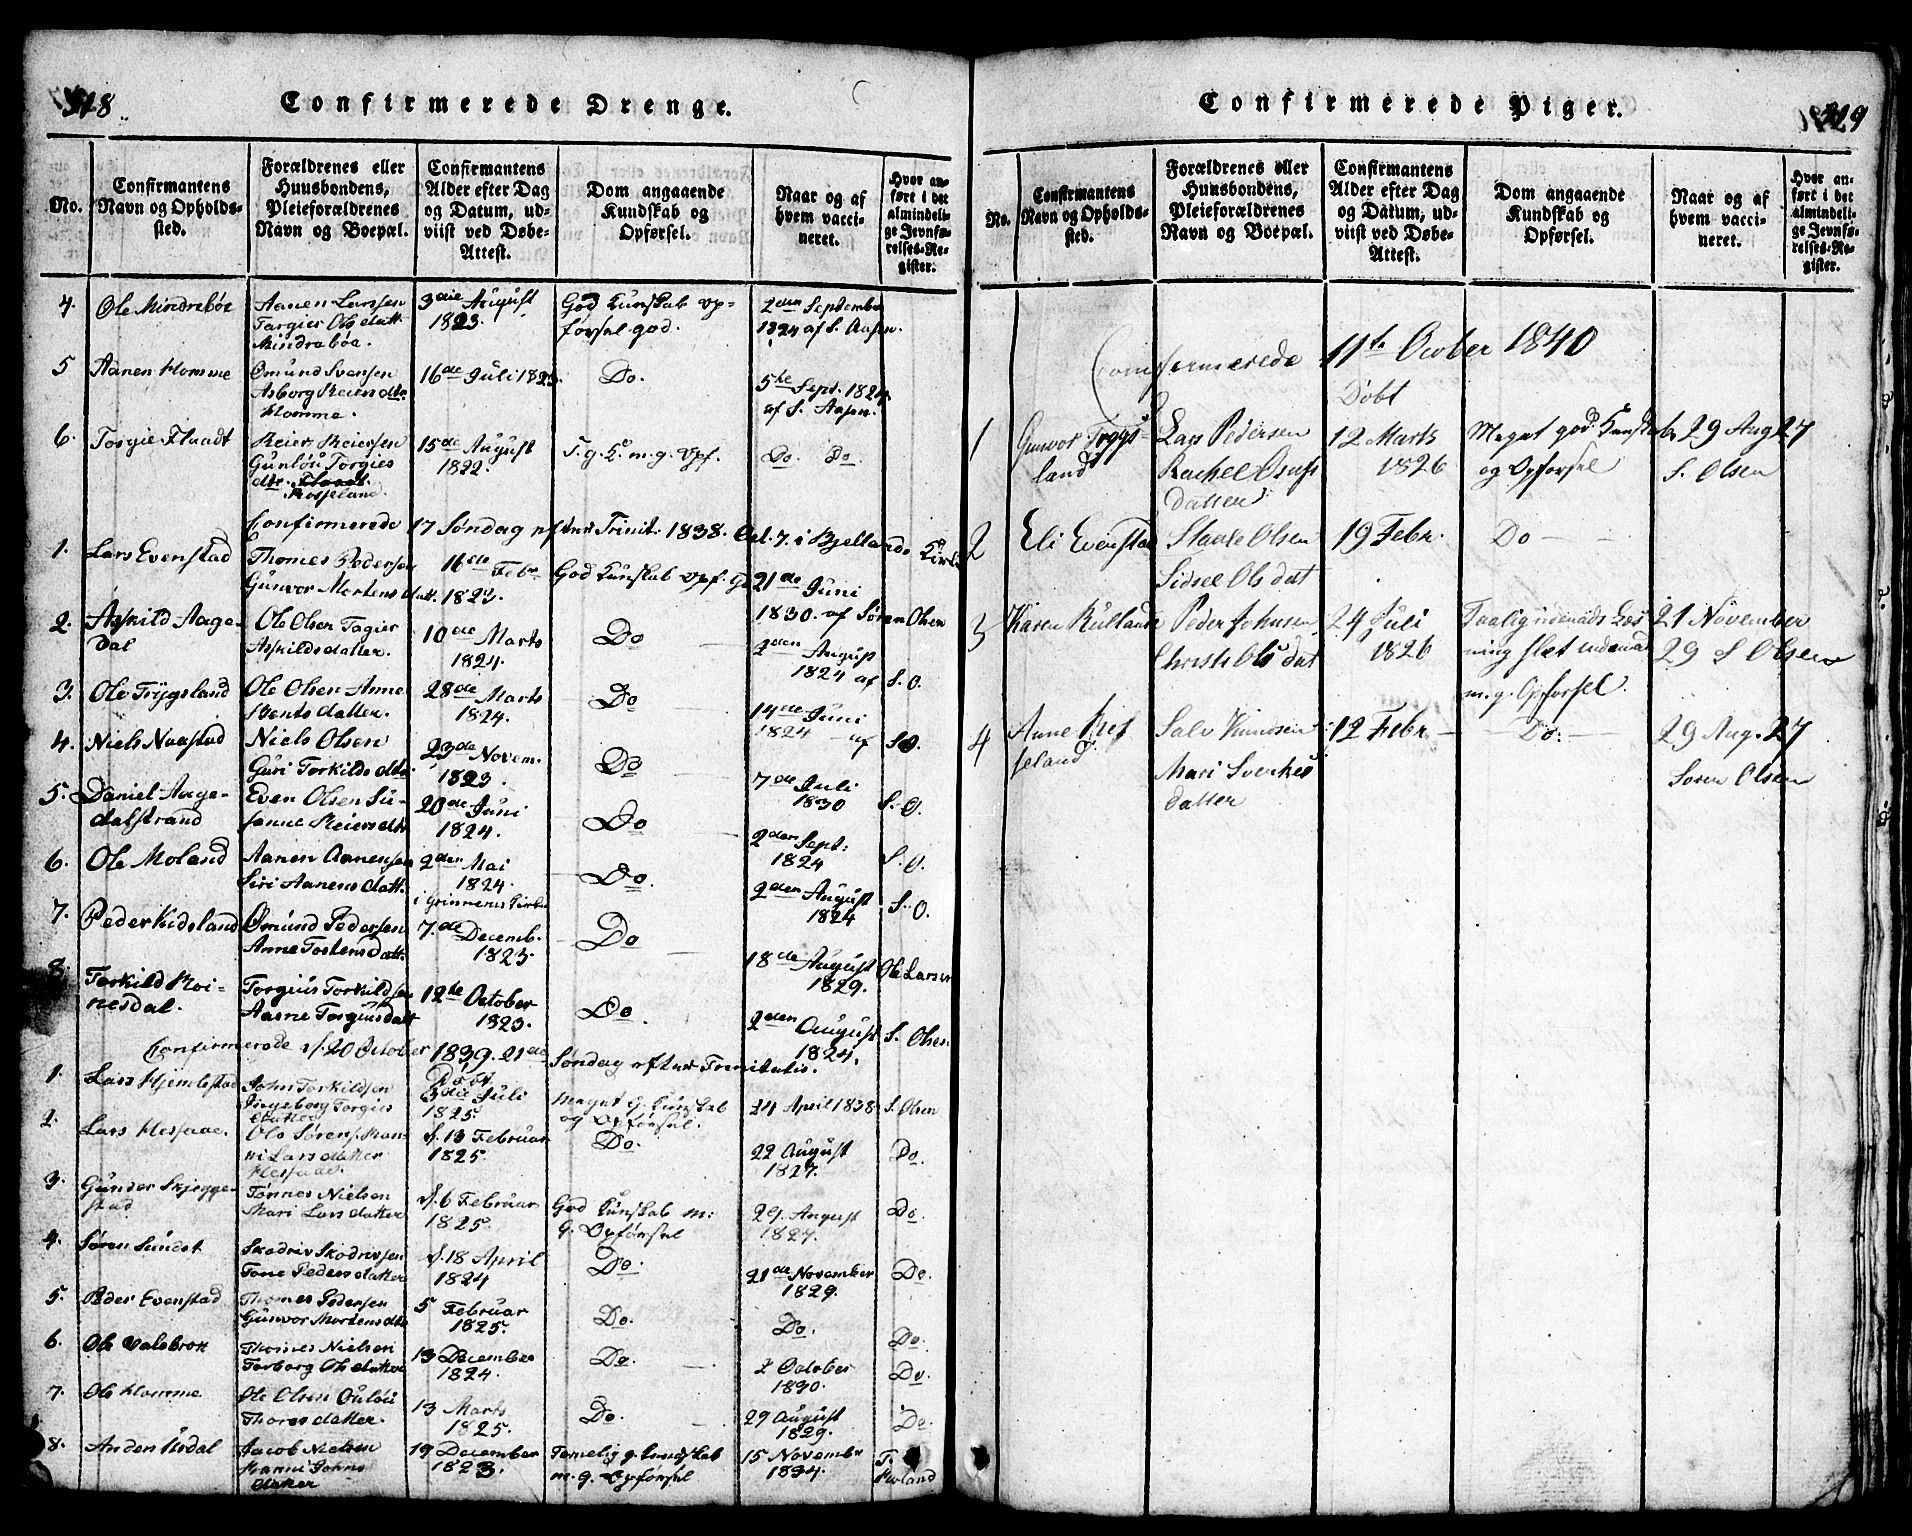 318
Confirmerede Drenge.
No.
Confirmantens
Navn og Opholds-
sted.
Forældrenes eller
Huusbondens,
Pleieforældrenes
Navn og Boepæl.
Confirmantens
Alder efter Dag
og Datum, ud-
viist ved Døbe-
Attest.
Dom angaaende
Kundskab og
Opførsel.
Naar og af
hvem vacci-
neret.
Hvor an-
ført i det
almindeli-
ge Jevnfø-
relses-Re-
gister.
4. Ole Mindrebøe
Aanen Larssen
Targier Olsdatt.
Mindrebøe.
3die August
1823.
God Kunskab op-
førsel god.
2den September
1824 af S. Aasen.
5 Aanen Homme
Omund Svensen
Asborg Reiersdtr
Homme.
16de Juli 1823.
Do.
5te Sept. 1824
af S. Aasen.
6. Torgie Flaadt
Reier Reiersen
Gunlou Torgies
dtr.
Rosseland.
15de August
1822.
T. g. K. m. g. Opf.
Do. Do.
Confirmerede 17 Søndag efter Trinit. 1838. Oct. 7. i Bjellands Kirke
1. Lars Evenstad
Thomes Pedersen
Gunvor Mortensdatt.
16de Febr.
1823.
God Kunskab opf. G.
21de Juni
1830. af Søren Olsen
2. Askild Aage-
dal
Ole Olsen Tagier
Askildsdatter.
10de Marts
1824.
Do
2den August
1824 af S. O.
3. Ole Trygsland
Ole Olsen Anne
Bentsdatter.
28de Marts
1824.
Do
14de Juni
1824 af S. O.
4. Niels Naastad
Niels Olsen
Guri Torkildsdtr
23de Novem.
1823.
Do
7de Juli
1830 S. O.
5. Daniel Aage-
dalstrand
Even Olsen Su-
sanne Reiersdtr
20de Juni
1824.
Do
2den Sept:
1824 S. O.
6. Ole Moland
Aanen Aanensen
Siri Aanensdatt.
2den Mai
1824.
i Grinnems Kirke
Do.
2den August
1824 S. O.
7. Peder Kidsland
Omund Pedersen
Anne Tostensdatt.
7.de Decemb.
1823.
Do
18de August
1829. Ole Larsen
8. Torkild Røi-
nesdal.
Torgius Torkildsen
Aasne Torgiusdatt
12te October
1823.
Do.
2den August
1824. S. Olsen
Confirmerede d. 20 October 1839. 21de Søndag efter Trinitatis.
Døbt
1. Lars Hjemlestad
John Torkildsen
Ingeborg Torgies
datter
3die Juli
1825.
Meget G. Kunskab
og Opførsel.
24 April 1838 S. Olsen
2. Lars Hesaae.
Ole Sørens. Man-
ni Larsdatter
Hesaae.
d. 13 Februar
1825.
Do.
22 August
1827. Do.
3. Gunder Skjegge-
stad
Tønnes Nielsen
Mari Larsdatter
d. 6 Februar
1825.
God Kunskab m:
G. Opførsel
29. August
1827. Do.
4. Søren Sundet
Skadriv Skadrivsen
Tone Pedersdatter
d. 18 April
1824
Do.
21de November
1829. Do.
5. Peder Evenstad
Thomes Pedersen
Gunvor Mortensdtr
5 Februar
1825.
Do.
Do. Do
6. Ole Valebrok
Thomes Nielsen
Torborg Olsdatter
13 December
1824.
Do.
2 October
1830. Do.
7. Ole Homme
Ole Olsen Gulou
Thoresdatter.
13 Marts
1825.
Do.
29 August
1829. Do.
8. Anden Usdal
Jacob Nielsen
Manni Johns
datter
19 December
1823.
Temelig g. Kundskab
m. g. Opførsel
15 Novembr
1834.
T.
Moland
319
Confirmerede Piger.
No.
Confirmantens
Navn og Opholds-
sted.
Forældrenes eller
Huusbondens,
Pleieforældrenes
Navn og Boepæl.
Confirmantens
Alder efter Dag
og Datum, ud-
viist ved Døbe-
Attest.
Dom angaaende
Kundskab og
Opførsel.
Naar og af
hvem vacci-
neret.
Hvor an-
ført i det
almindeli-
ge Jevnfø-
relses-Re-
gister.
Confirmerede 11te Ocober 1840
Døbt
1 Gunvor Trygs-
land
Lars Pedersen
Rachel Osuls
datter
12 Marts
1826
Meget god Kunskab
og Opførsel
29 Aug 27
S. Olsen
2 Eli Evenstad
Staale Olsen
Sidsel Olsdat
19 Febr.
Do
3 Karen Rulland
Peder Johnsen
Christi Olsdat
24 Juli
1826
Taalig
m. g. Opførsel.
21 November
29 S Olsen
4 Anne Ros
seland
Salv Knudsen
Mari Sverkes
datter
12 Febr.
Do.
29 Aug. 27
Søren Olsen